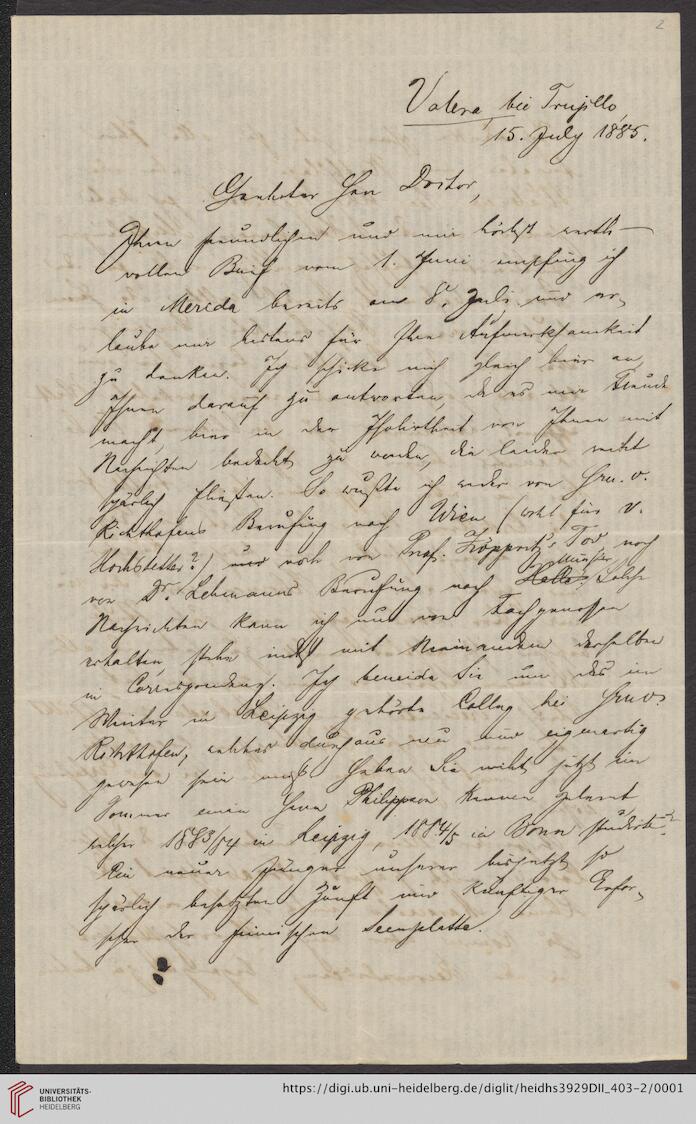 2
Valera bei Trujillo,
15. July 1885.
Geehrter Herr Doctor,
Ihren freundlichen und mir höchst werth-
vollen Brief vom 1. Juni empfing ich
in Merida bereits am 8. Juli und er-
laube mir bestens für Ihre Aufmerksamkeit
zu danken. Ich schicke mich gleich hier an,
Ihnen darauf zu antworten, da es mir Freude
macht hier in der von Ihnen mit
Nachrichten bedacht zu werden, die leider recht
spärlich fließen. So wußte ich weder von Hrn. v.
Richthofens Berufung nach Wien (wohl für v.
Hochstetter?) und noch von Prof. Zöppritz' Tod noch
von Dr. Lehmanns Berufung nach Halle; Solche
Münster
Nachrichten kann ich nur von Fachgenossen
erhalten, stehe indeß mit Niemandem derselben
in Correspondenz. Ich beneide Sie um das im
Winter in Leipzig gehörte Colleg bei Hrn v.
Richthofen, welches durchaus neu und eigenartig
gewesen sein muß. Haben Sie nicht jetzt im
Sommer einen Herrn Philippson kennen gelernt
welcher 1883/84 in Leipzig, 1884/5 in Bonn studirte?
Ein neuer Jünger unserer bisjetzt so
spärlich besetzten Zunft und künftiger Erfor-
scher der finnischen Seenplatte.
UNIVERSITÄTS-
BIBLIOTHEK
HEIDELBERG
https://digi.ub.uni-heidelberg.de/diglit/heidhs3929DII_403-2/0001